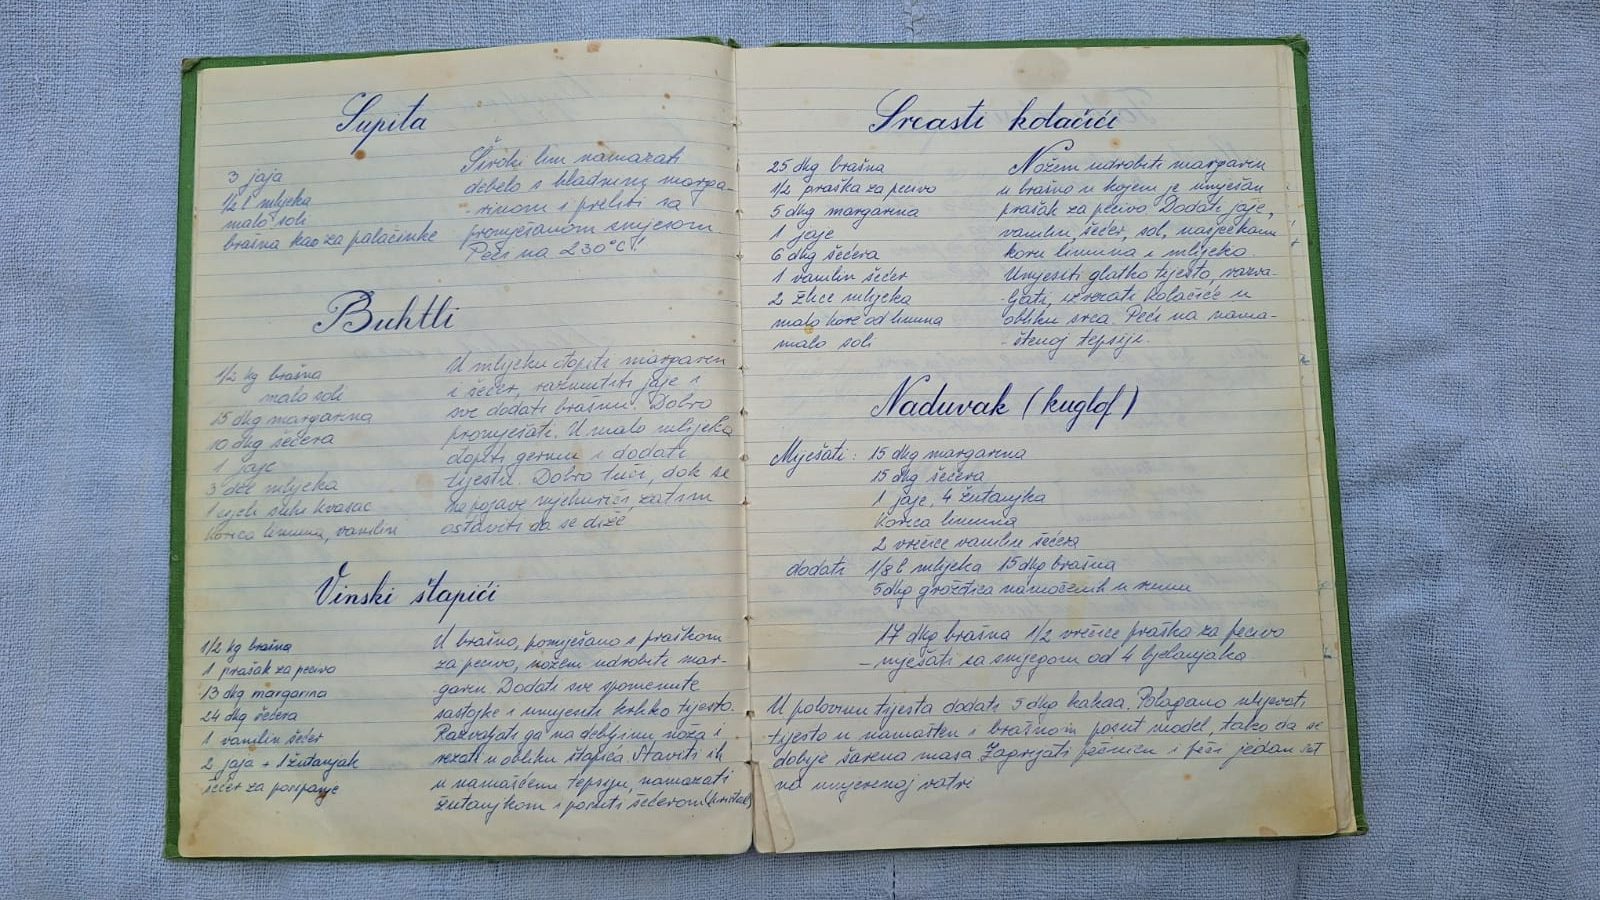 Supita
3 jaja
1/2 l mlijeka
malo soli
brašna kao za palačinke
Široki lim namazati
debelo s hladnim marga-
-rinom i preliti sa
promješanom smjesom.
Peći na 230°C!
Buhtli
1/2 kg brašna
malo soli
15 dkg margarina
10 dkg šećera
1 jaje
3 dcl mlijeka
1 cijeli suhi kvasac
korica limuna, vanilin
U mlijeku otopiti margarin
i šećer, razmutiti jaje i
sve dodati brašnu. Dobro
promješati. U malo mlijeka
otopiti germu i dodati
tijestu. Dobro tući, dok se
ne pojave mjehurići, zatim
ostaviti da se diže
Vinski štapići
1/2 kg brašna
1 prašak za pecivo
13 dkg margarina
24 dkg šećera
1 vanilin šećer
2 jaja + 1 žutanjak
šećer za posipanje
U brašno, pomješano s praškom
za pecivo, nožem udrobiti mar-
garin. Dodati sve spomenute
sastojke i umijesiti krhko tijesto.
Razvaljati ga na debljinu noža i
rezati u obliku štapića. Staviti ih
u namašćenu tepsiju, namazati
žutanjkom i posuti šećerom (kristal)
Srcasti kolačići
25 dkg brašna
1/2 praška za pecivo
5 dkg margarina
1 jaje
6 dkg šećera
1 vanilin šećer
2 žlice mlijeka
malo kore od limuna
malo soli
Nožem udrobiti margarin
u brašno u kojem je umješan
prašak za pecivo. Dodati jaje,
vanilin, šećer, sol, nasjeckanu
koru limuna i mlijeko.
Umjesiti glatko tijesto, razva-
-ljati, izrezati kolačiće u
obliku srca. Peći na nama-
-štenoj tepsiji.
Naduvak (kuglof)
Mješati: 15 dkg margarina
15 dkg šećera
1 jaje, 4 žutanjka
korica limuna
2 vrećice vanilin šećera
dodati 1/8 l mlijeka 15 dkg brašna
5 dkg grožđica namočenih u rumu
17 dkg brašna 1/2 vrećice praška za pecivo
- mješati sa snijegom od 4 bjelanjaka
U polovinu tijesta dodati 5 dkg kakaa. Polagano ulijevati
tijesto u namašten i brašnom posut model, tako da se
dobije šarena masa. Zagrijati pećnicu i peći jedan sat
na umjerenoj vatri